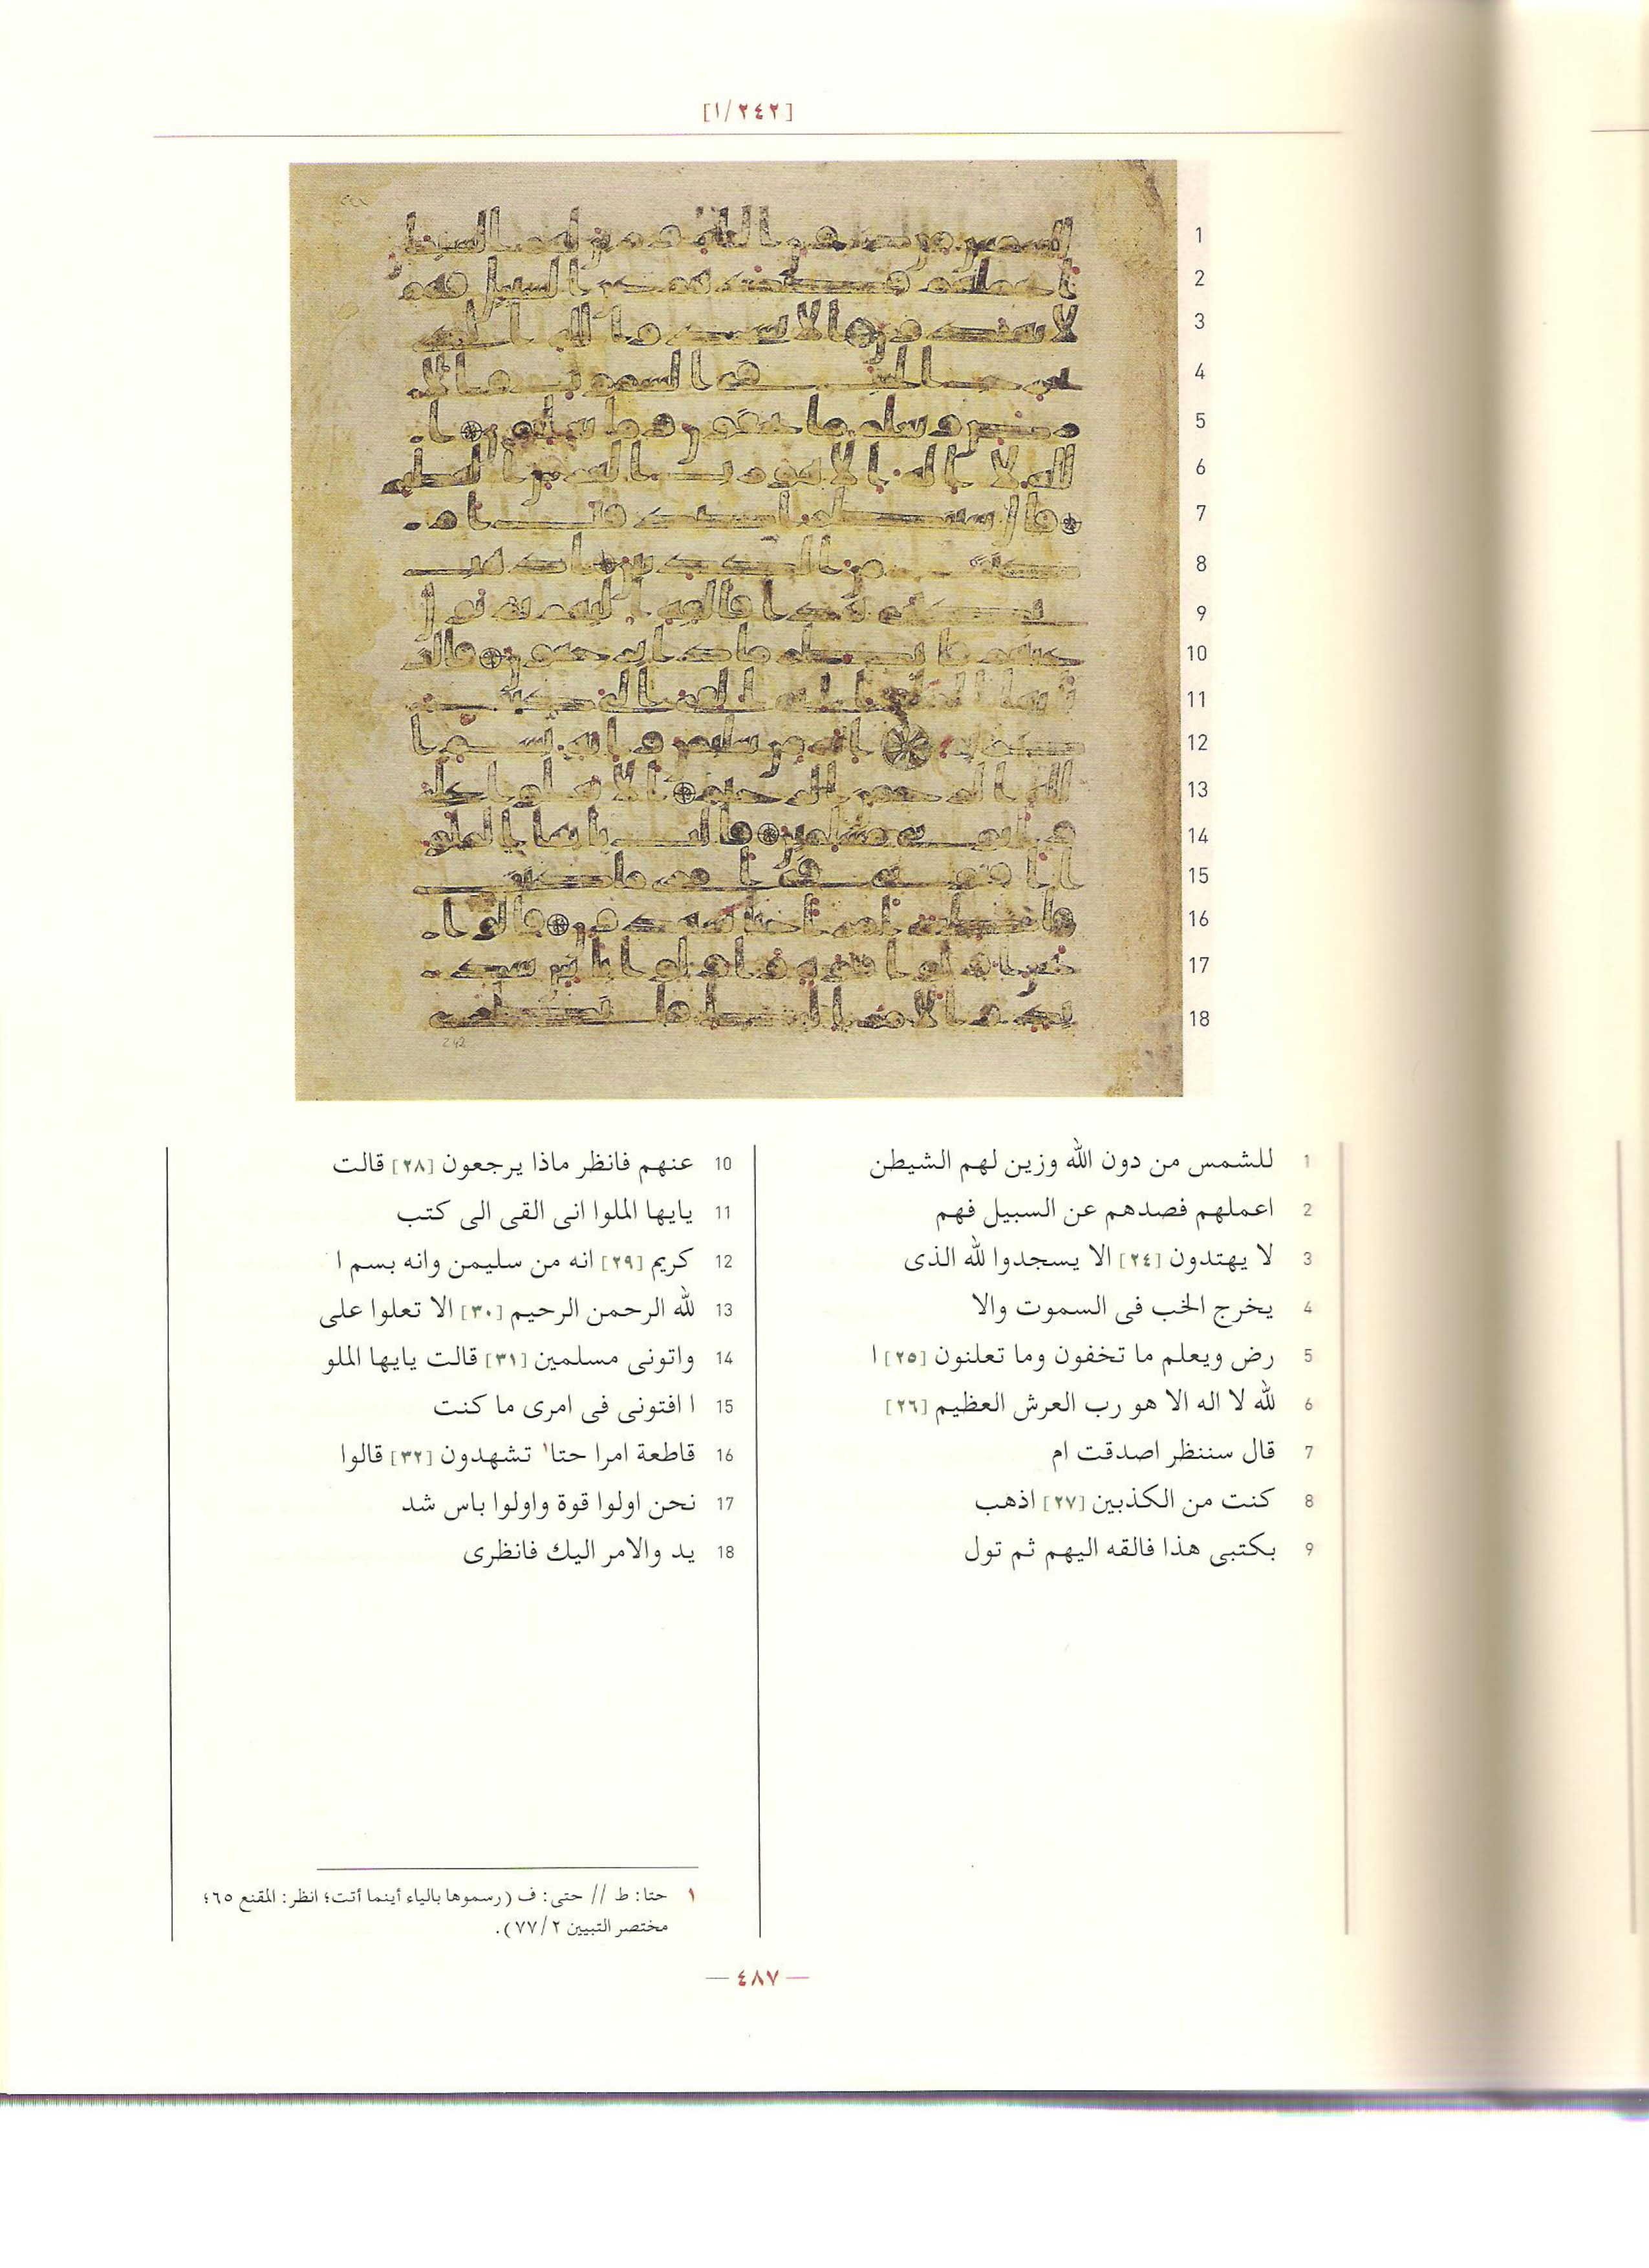 [١/٢٤٢]
1
2
3
4
5
6
7
8
9
10
11
12
13
14
15
16
17
18
242
1 للشمس من دون الله وزين لهم الشيطن
2 اعملهم فصدهم عن السبيل فهم
3 لا يهتدون [٢٤] الا يسجدوا لله الذى
4 يخرج الخب فى السموت والا
5 رض ويعلم ما تخفون وما تعلنون [٢٥] ا
6 لله لا اله الا هو رب العرش العظيم [٢٦]
7 قال سننظر اصدقت ام
8 كنت من الكذبين [٢٧] اذهب
9 بكتبى هذا فالقه اليهم ثم تول
10 عنهم فانظر ماذا يرجعون [٢٨] قالت
11 يايها الملوا انى القى الى كتب
12 كريم [٢٩] انه من سليمن وانه بسم ا
13 لله الرحمن الرحيم [٣٠] الا تعلوا على
14 واتونى مسلمين [٣١] قالت يايها الملو
15 ا افتونى فى امرى ما كنت
16 قاطعة امرا حتا١ تشهدون [٣٢] قالوا
17 نحن اولوا قوة واولوا باس شد
18 يد والامر اليك فانظرى
١ حتا: ط // حتى: ف (رسموها بالياء أينما أتت؛ انظر: المقنع ٦٥؛
مختصر التبيين ٧٧/٢).
— ٤٨٧ —